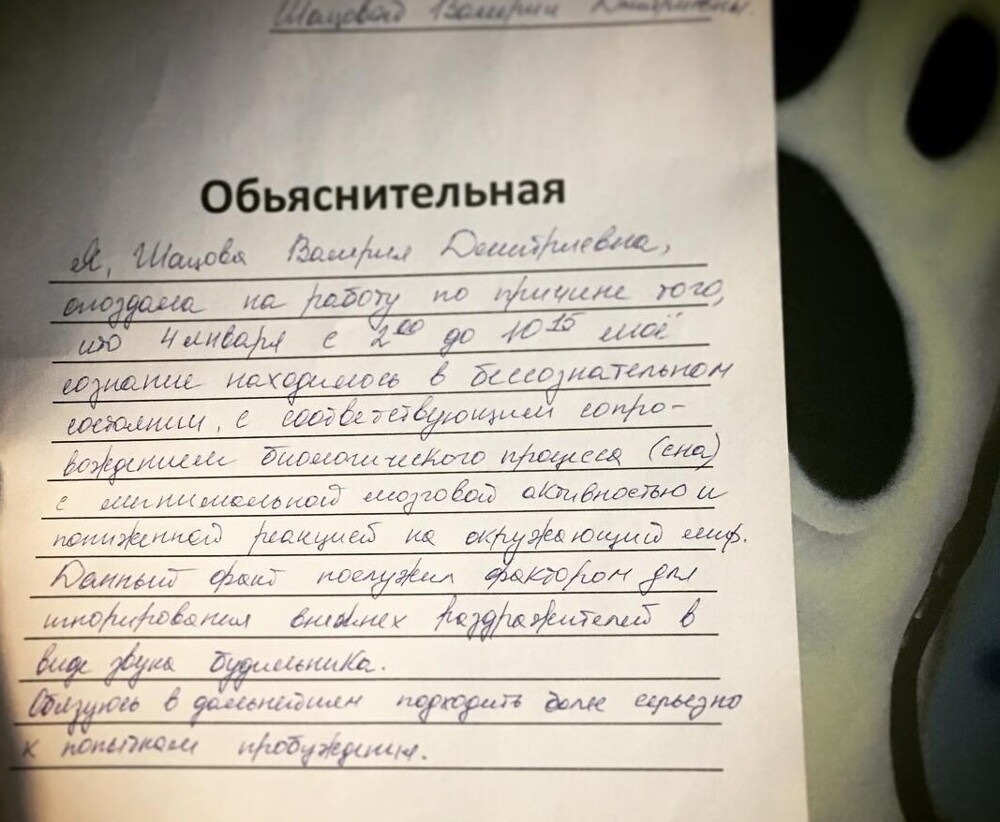 Шацовой Валерии Дмитриевны.
Обьяснительная
Я, Шацова Валерия Дмитриевна,
опоздала на работу по причине того,
что 4 января с 2⁰⁰ до 10¹⁵ моё
сознание находилось в бессознательном
состоянии, с соответствующим сопро-
вождением биологического процесса (сна)
с минимальной мозговой активностью и
пониженной реакцией на окружающий мир.
Данный факт послужил фактором для
игнорирования внешних раздражителей в
виде звука будильника.
Обязуюсь в дальнейшем подходить более серьезно
к попыткам пробуждения.